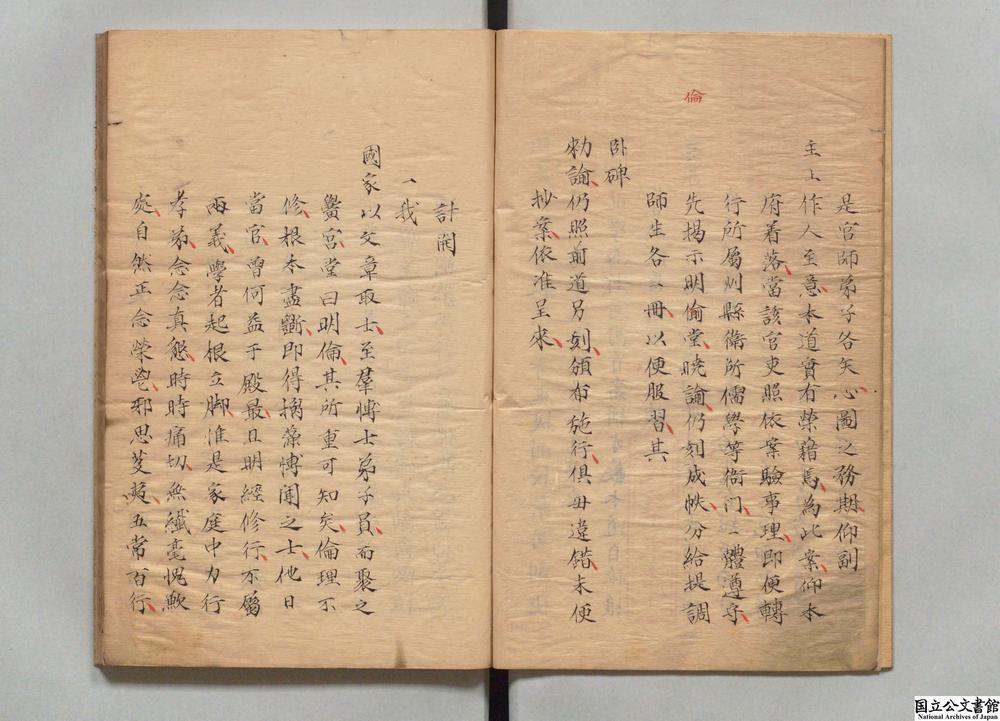 倫
是官師弟子各矢心圖之務期仰副
主上作人至意本道實有榮藉焉為此案仰本
府着落當該官吏照依案驗事理即便轉
行所屬州縣衛所儒學等衙門一體遵守
先揭示明倫堂曉諭仍刻成帙分給提調
師生各一冊以便服習其
卧碑
勑諭仍照前道另刻頒布施行俱毋違錯未便
抄案依准呈來
計開
一我
國家以文章取士至羣愽士弟子員而聚之
黌宮堂曰明倫其所重可知矣倫理不
修根本盡斷即得摛藻愽聞之士他日
當官曾何益于殿最且明經修行不屬
兩義學者起根立腳准是家庭中力行
孝弟念念真懇時時痛切無纖毫愧歉
處自然正念榮鬯邪思芟
五常百行
国立公文書館
National Archives of Japan